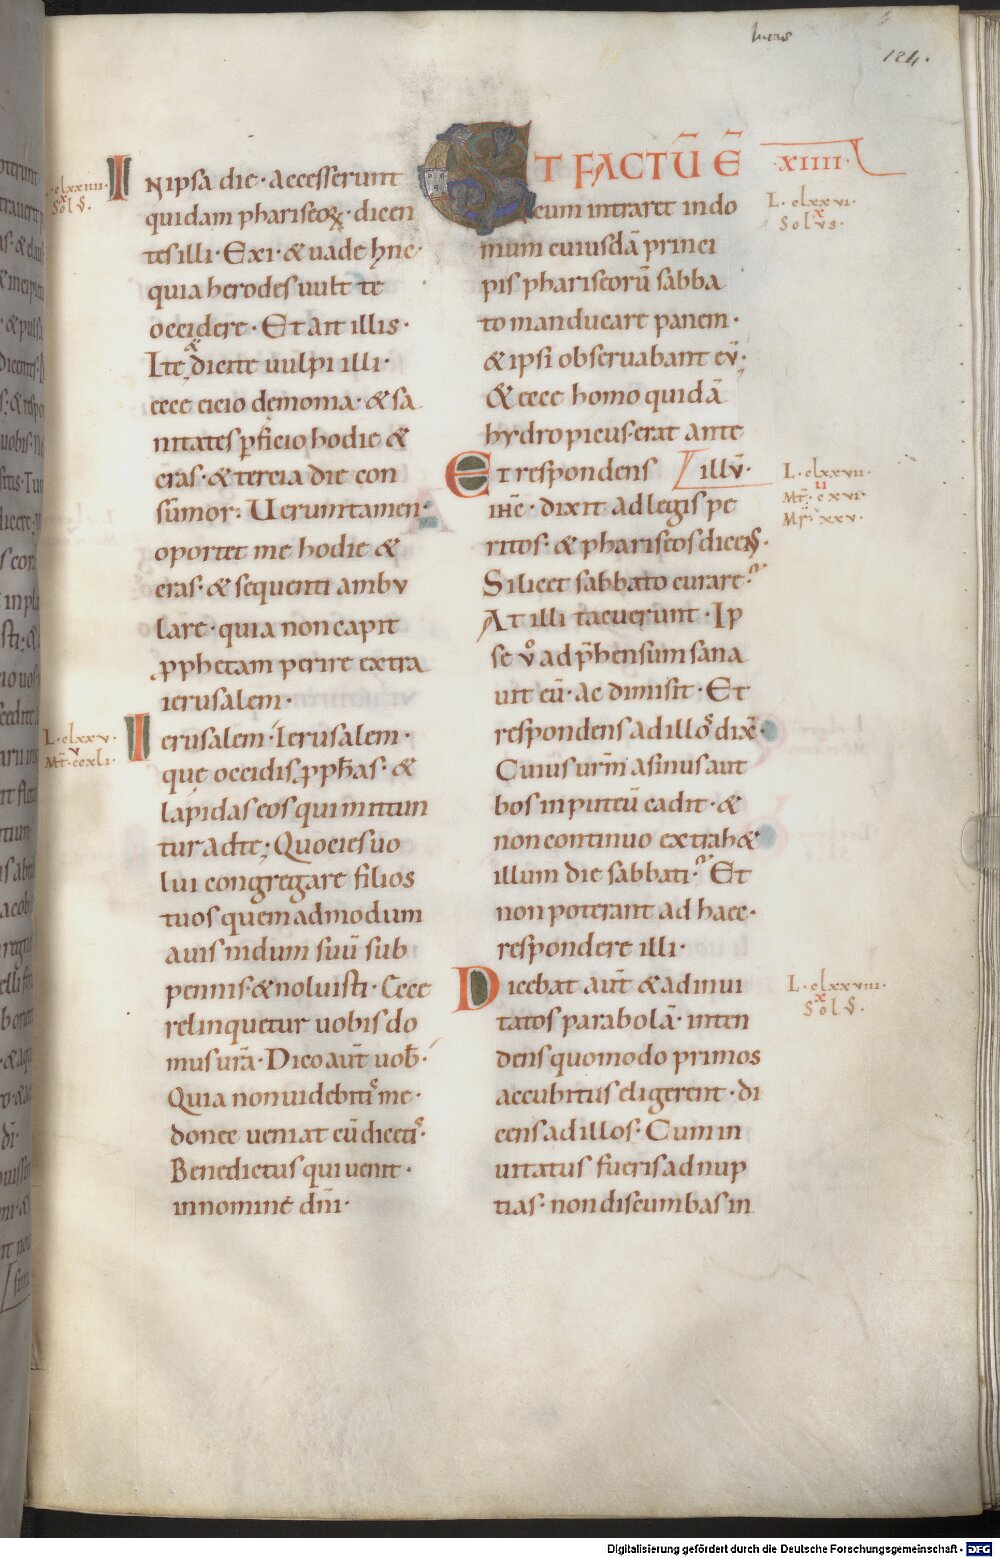 lucas
124.
L. clxxiiii.
x
Solꝰ.
IN ipsa die· accesserunt
quidam phariseoꝝ· dicen
tes illi· Exi· & uade hinc·
quia herodes uult te
occidere· Et ait illis·
Ite &dicite uulpi illi·
ecce eicio demonia· & sa
nitates ꝑficio hodie &
cras· & tercia die con
sūmor· Ueruntamen
oportet me hodie &
cras· & sequenti ambu
lare· quia non capit
ꝓphetam perire extra
ierusalem·
L. clxxv.
v
Mt̄. ccxli.
Ierusalem· Ierusalem·
quę occidis ꝓph̄as· &
lapidas eos qui mittun
tur ad te; Quocies uo
lui congregare filios
tuos quemadmodum
auis nidum suū sub
pennis· & noluisti· Ecce
relinquetur uobis do
mus ur̄a· Dico aut̄ uob̄·
Quia non uidebitiˢ me·
donec ueniat cū diceti ˢ·
Benedictus qui uenit·
in nomine dn̄i·
ET FACTŪ Ē ·XIIII·
L. clxxvi.
x
Solus.
cum intraret in do
mum cuiusdā princi
pis phariseorū sabba
to manducare panem·
& ipsi obseruabant eū·
& ecce homo quidā
hydropicus erat ante
Et respondens illū·
L. clxxvii.
ii
Mt̄. cxvi.
Mr̄. xxv.
iħc· dixit ad legis pe
ritos· & phariseos dicens·
Si licet sabbato curare·
At illi tacuerunt· Ip
se ů adp̄hensum sana
uit eū· ac dimisit· Et
respondens ad illoˢ dix̄·
Cuius ur̄m asinus aut
bos in puteū cadit· &
non continuo extrah&
illum die sabbati· Et
non poterant ad haec·
respondere illi·
L. clxxviii.
x
Solꝰ.
Dicebat aut̄ & ad inui
tatos parabolā· inten
dens quomodo primos
accubitus eligerent· di
cens ad illos· Cum in
uitatus fueris ad nup
tias· non discumbas in
Digitalisierung gefördert durch die Deutsche Forschungsgemeinschaft - DFG